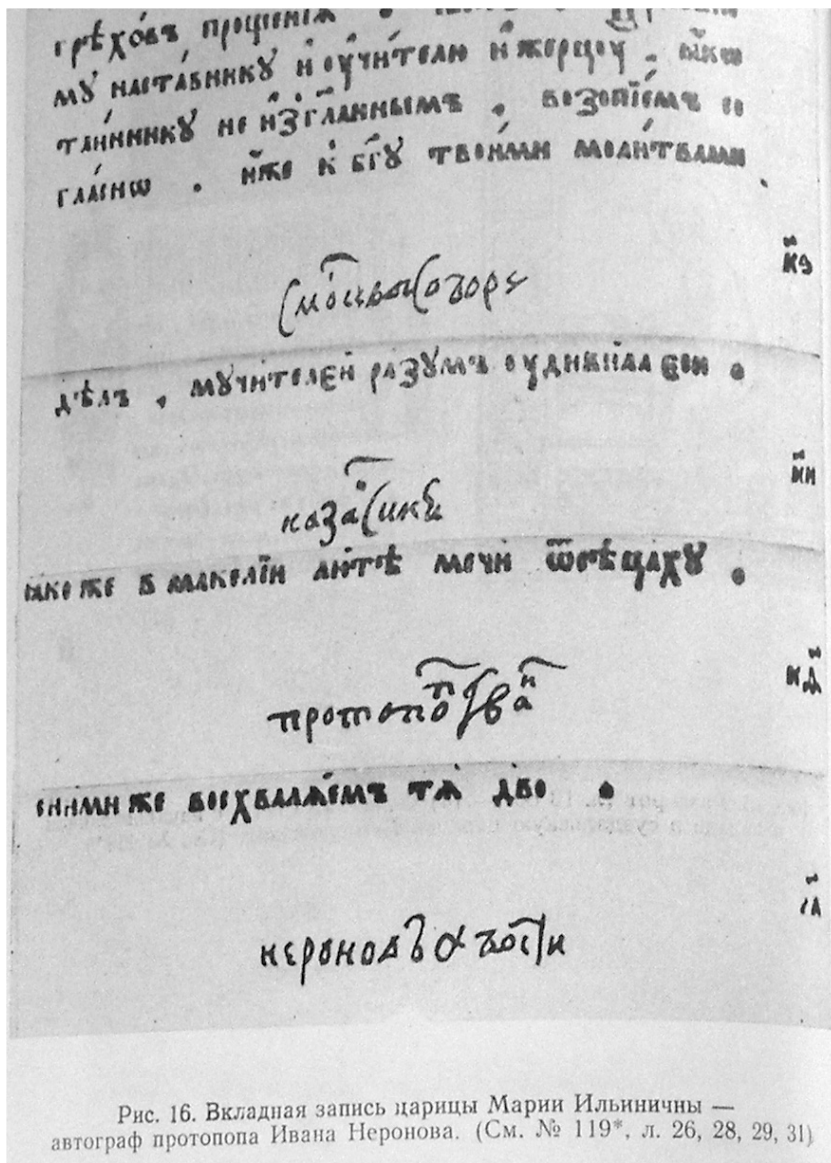 грѣхо́въ проще́нїѧ
мꙋ наста́вникꙋ и҆ оу҆чи́телю и҆ же́рцоу . ꙗ҆́кѡ
та́нникꙋ не и҆згла́нным​ъ . возопїе́мъ со
гла́снѡ . и҆́же к̾ бг҃ꙋ твои́ми моли́твами
к҃ѕ
мо́сквы соборѧ
дѣлъ , мꙋчи́телей ра́зꙋмъ оудиви́ла еси .
к҃и
каза́нскиѧ
ꙗ҆коже в маке́лїи лю́тѣ мечи ѿсѣца́хꙋ .
к҃ѳ
протопо́пъ ива́нъ
си́ми же восхвалѧ́емъ тѧ̀ дв҃о .
л҃а
нероновъ
Рис. 16. Вкладная запись царицы Марии Ильиничны —
автограф протопопа Ивана Неронова. (См. № 119*, л. 26, 28, 29, 31)